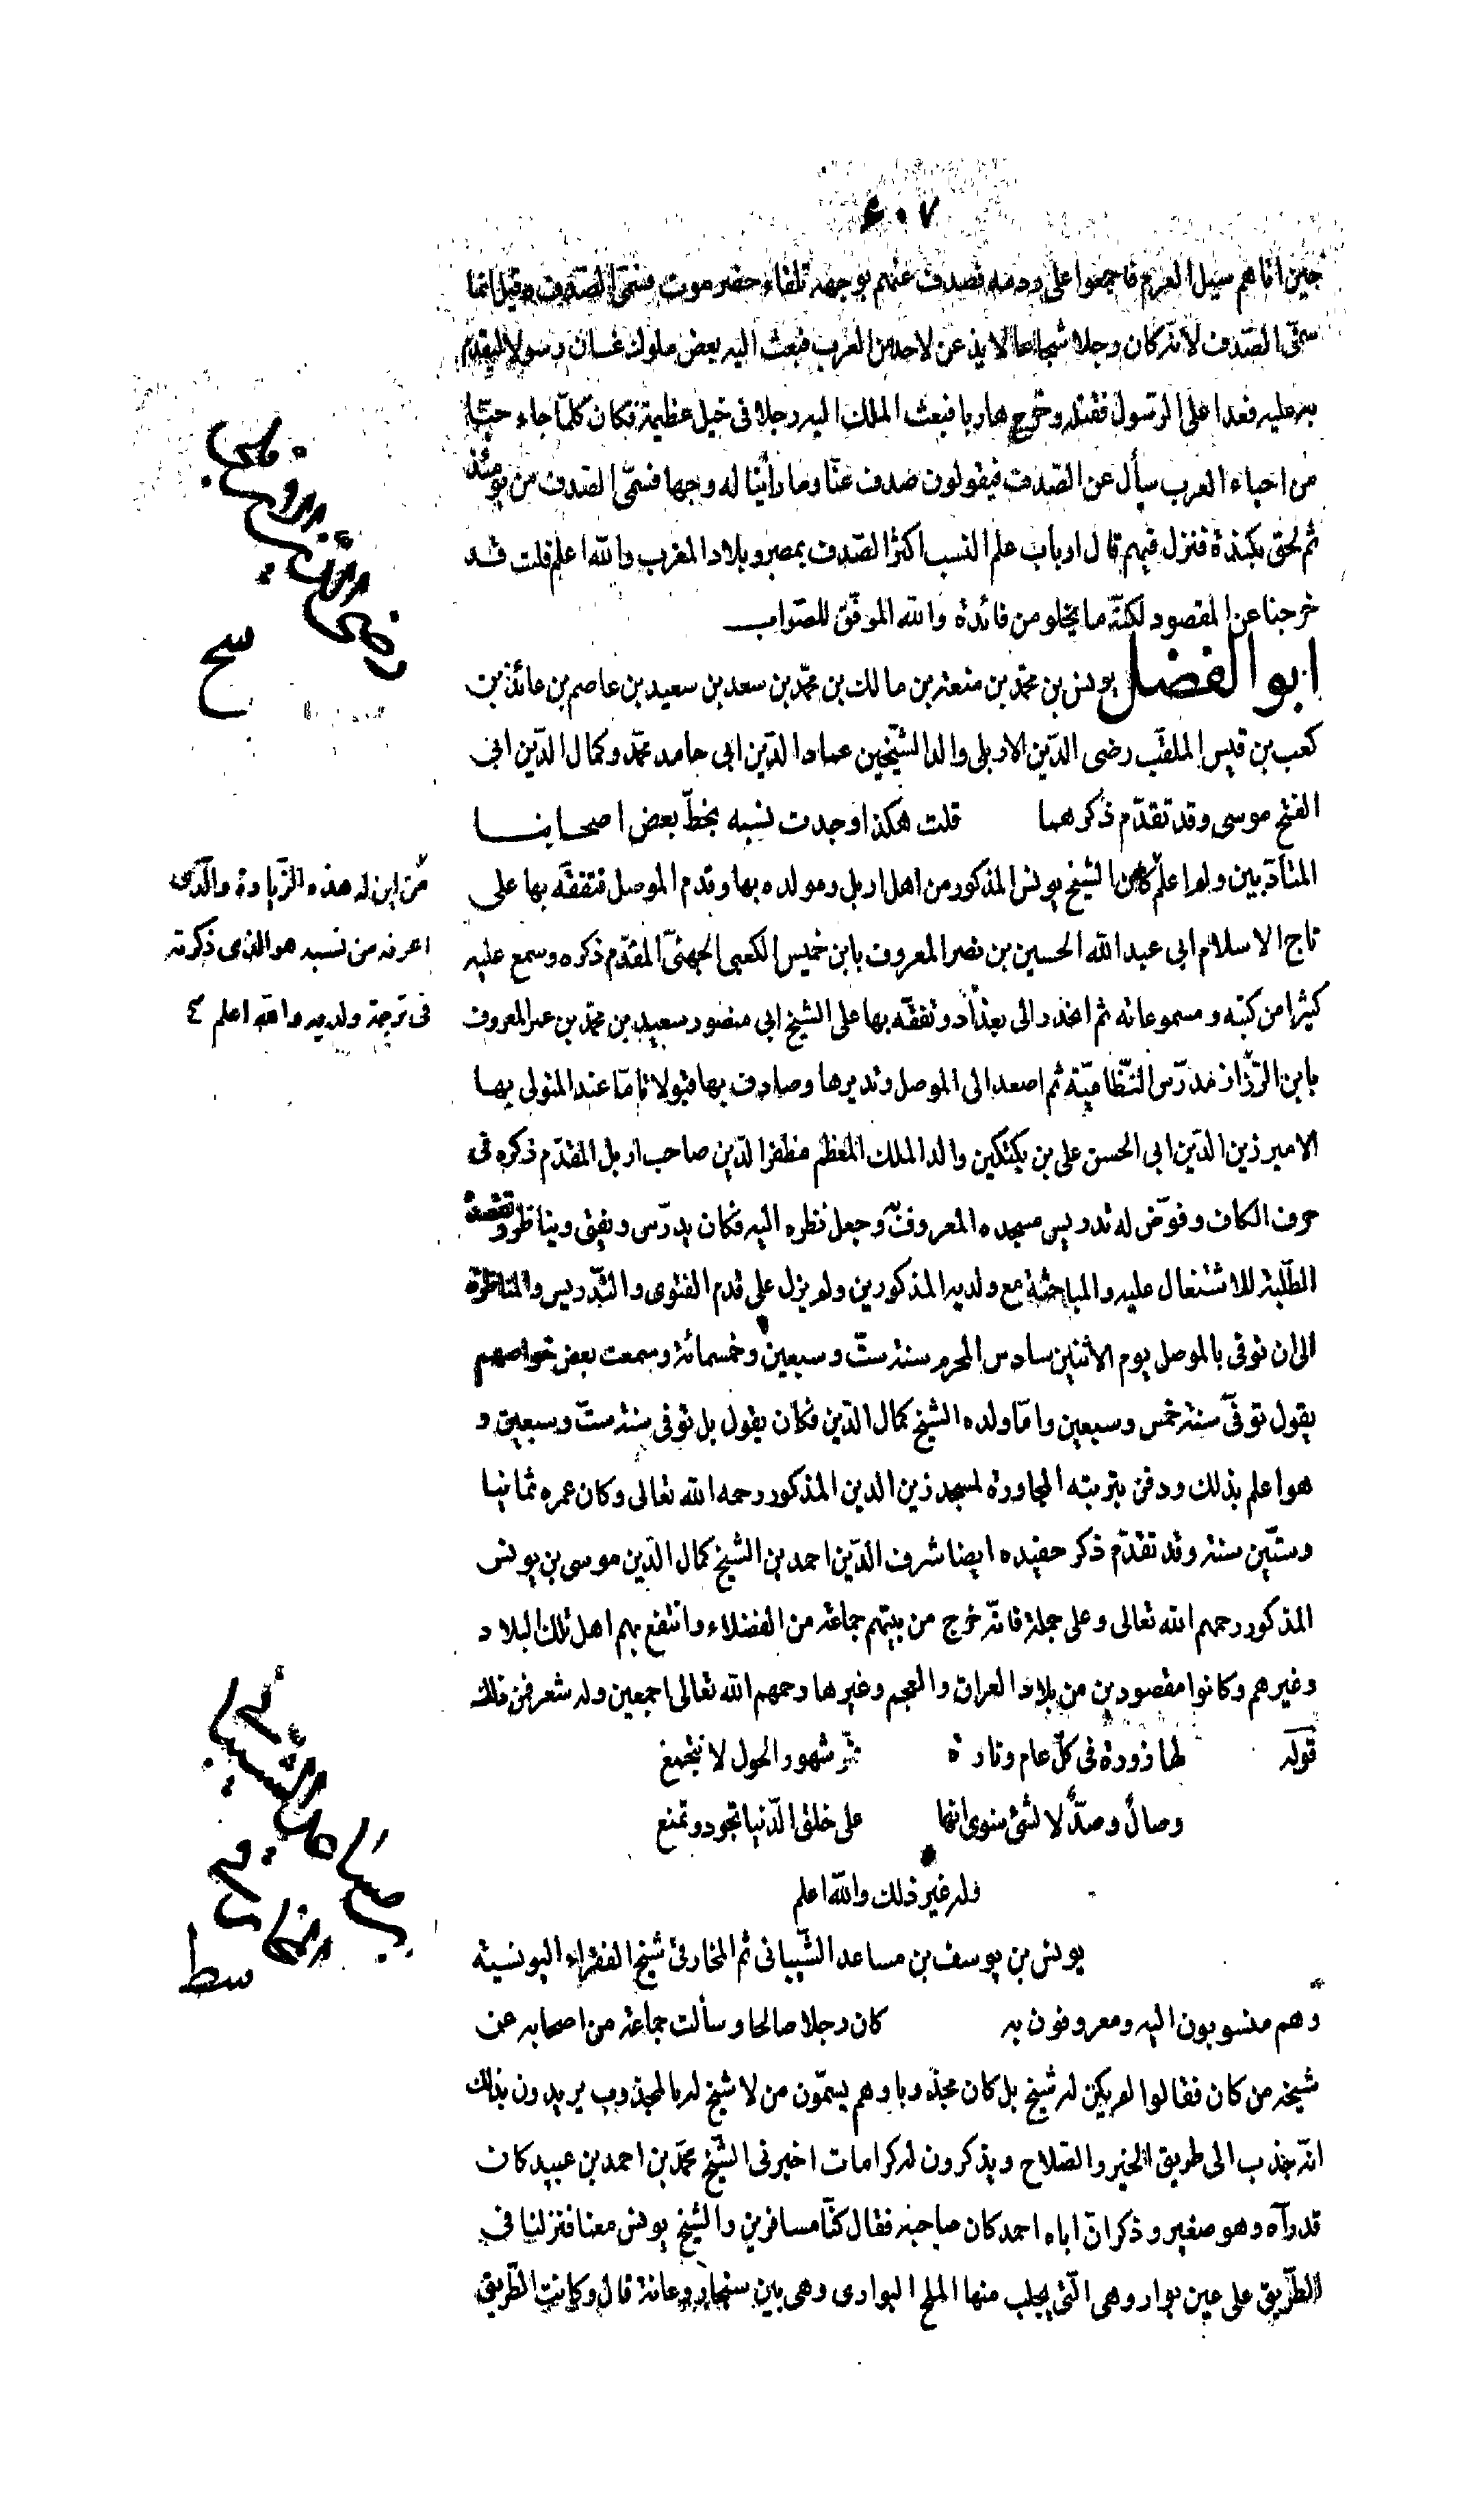 ٤٠٧
حين اتاهم سيل العرم فاجمعوا على ردمه فصدف عنهم بوجهه تلقاء حضر موت فسمّى الصّدف وقيل انّما
سمّى الصّدف لانّه كان رجلا شجاعا لا يذعن لاحد من العرب فبعث اليه بعض ملوك غسان رسولا ليقدم
به عليه فعدا على الرّسول فقتله وخرج هاربا فبعث الملك اليه رجلا فى خيل عظيمة فكان كلّما جاء حيّا
من احياء العرب سأل عن الصّدف فيقولون صدف عنّا وما رأينا له وجها فسمّى الصّدف من يومئذ
ثم لحق بكندة فنزل فيهم قال ارباب علم النسب اكثر الصّدف بمصر وبلاد المغرب والله اعلم قلت قد
خرجنا عن المقصود لكنّه ما يخلو من فائدة والله الموفّق للصّواب
ابو الفضل يونس بن محمّد بن منعة بن مالك بن محمّد بن سعد بن سعيد بن عاصم بن عائذ بن
كعب بن قيس الملقّب رضى الدّين الاربلى والد الشّيخين عماد الدّين ابى حامد محمّد وكمال الدّين ابى
الفتح موسى وقد تقدّم ذكرهما قلت هكذا وجدت نسبه بخطّ بعض اصحابنا
المتأدّبين ولم اعلم كان الشيخ يونس المذكور من اهل اربل ومولده بها وقدم الموصل فتفقّه بها على
تاج الاسلام ابى عبد الله الحسين بن نصر المعروف بابن خميس الكعبى الجهنىّ المقدّم ذكره وسمع عليه
كثيرا من كتبه ومسموعاته ثم انحدر الى بغداد وتفقّه بها على الشيخ ابى منصور سعيد بن محمّد بن عمر المعروف
بابن الرّزّاز مدرّس النّظاميّة ثم اصعد الى الموصل وتديرها وصادف بها قبولا تامّا عند المتولى بها
الامير زين الدّين ابى الحسن على بن بكتكين والد الملك المعظم مظفر الدّين صاحب اربل المقدّم ذكره فى
حرف الكاف وفوّض له تدريس مسجده المعروف به وجعل نظره اليه فكان يدرّس ويفتى ويناظر وتقصده
الطّلبة للاشتغال عليه والمباحثة مع ولديه المذكورين ولم يزل على قدم الفتوى والتّدريس والمناظرة
الى ان توفى بالموصل يوم الاثنين سادس المحرم سنة ستّ وسبعين وخمسمائة وسمعت بعض خواصهم
يقول توفّى سنة خمس وسبعين وامّا ولده الشيخ كمال الدّين فكان يقول بل توفى سنة ستّ وسبعين و
هو اعلم بذلك ودفن بتربته المجاورة لمسجد زين الدين المذكور رحمه الله تعالى وكان عمره ثمانيا
وستّين سنة وقد تقدّم ذكر حفيده ايضا شرف الدّين احمد بن الشيخ كمال الدّين موسى بن يونس
المذكور رحمهم الله تعالى وعلى جملة فانّه خرج من بيتهم جماعة من الفضلاء وانتفع بهم اهل تلك البلاد
وغيرهم وكانوا مقصودين من بلاد العراق والعجم وغيرها رحمهم الله تعالى اجمعين وله شعر فمن ذلك
قوله لها زورة فى كلّ عام وتارة تمرّ شهور الحول لا نتجمع
وصالٌ وصدٌّ لا لشئ سوى انها على خلق الدّنيا تجود وتمنع
وله غير ذلك والله اعلم
يونس بن يوسف بن مساعد الشّيبانى ثم المخارقى شيخ الفقراء اليونسية
وهم منسوبون اليه ومعروفون به كان رجلا صالحا وسألت جماعة من اصحابه عن
شيخه من كان فقالوا لم يكن له شيخ بل كان مجذوبا وهم يسمّون من لا شيخ له بالمجذوب يريدون بذلك
انّه جذب الى طريق الخير والصّلاح ويذكرون له كرامات اخبرنى الشّيخ محمّد بن احمد بن عبيد كان
قد رآه وهو صغير وذكر انّ اباه احمد كان صاحبه فقال كنّا مسافرين والشيخ يونس معنا فنزلنا فى
الطّريق على عين بوار وهى الّتى يجلب منها الملح البوارى وهى بين سنجار وعانة قال وكانت الطّريق
رضى الدّين
سح
من اين له هذه الزّيادة والّذى
اعرفه من نسبه هو الّذى ذكرته
فى ترجمة ولديه والله اعلم
الشّيبانى
سط